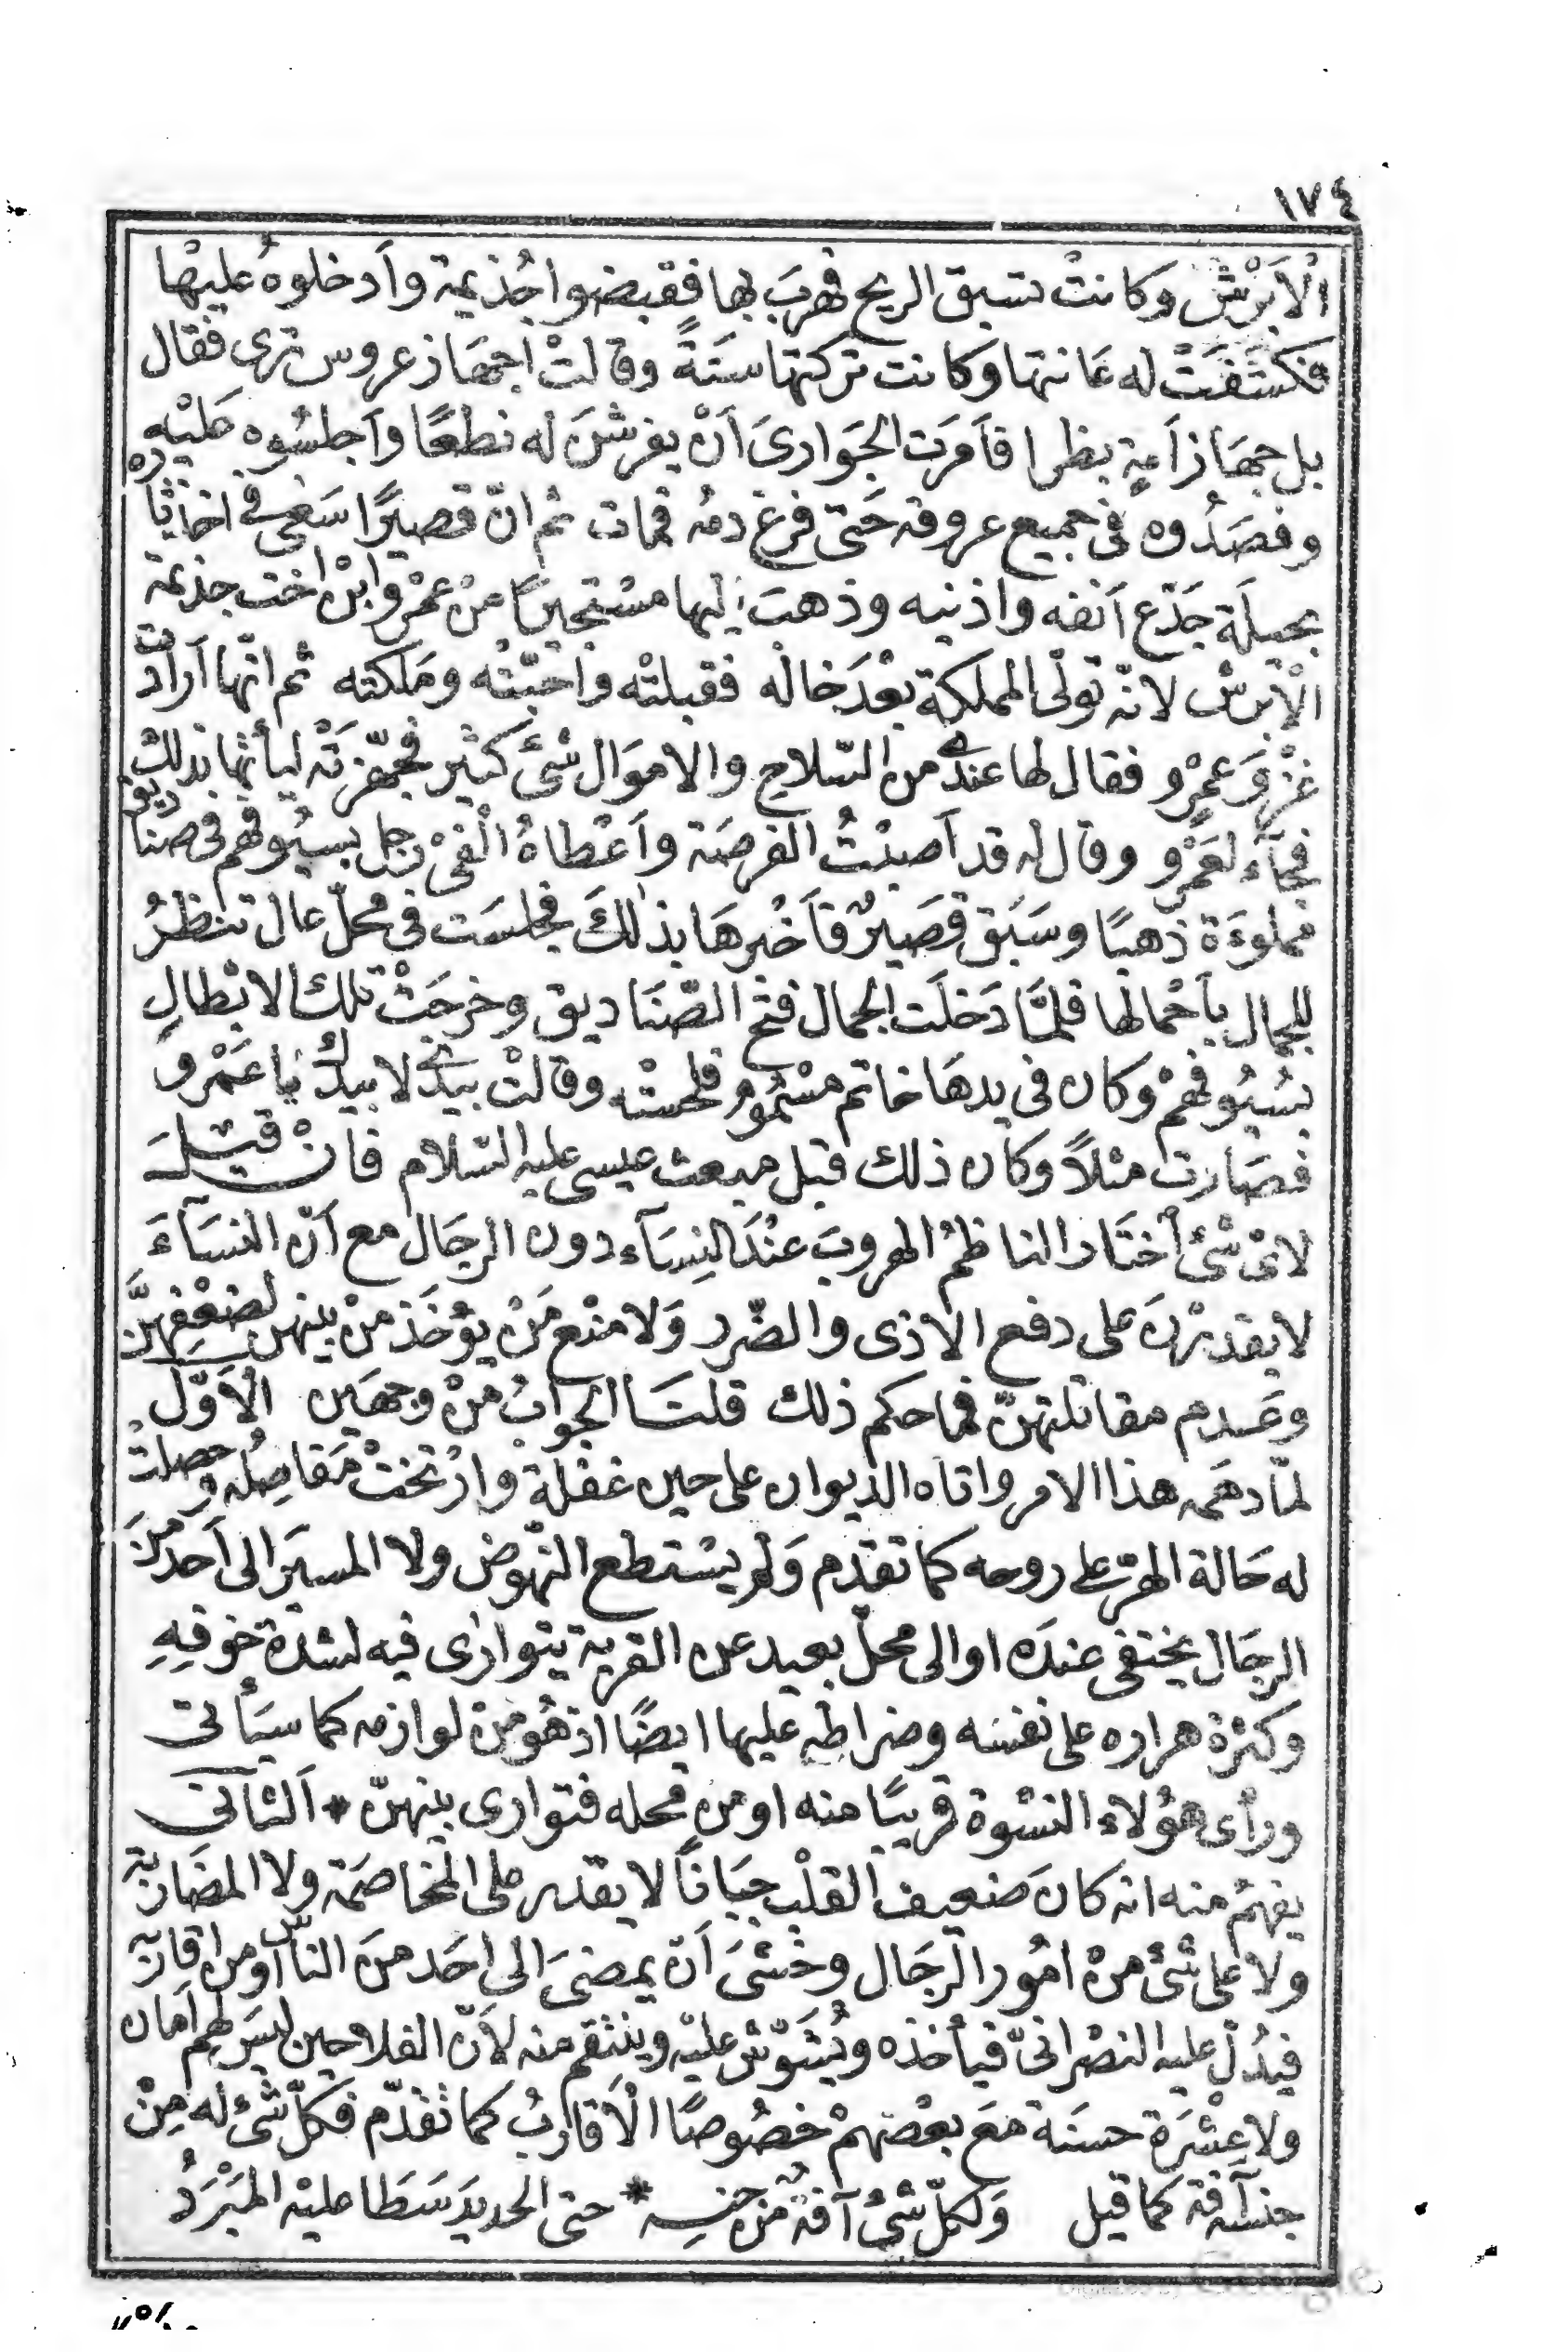 ١٧٤
الْاَبْرَشْ وكانتْ تسبق الريح فهربَ بها فقبضوا جُذيمة وأدخلوهُ عليْها
فكشَفَتْ له عَانتها وكانت تركتها سَنَةً وقالتْ أجهَاز عروس ترى فقال
بل جهَاز أمةٍ بظرا فأمَرَت الجَوارىَ أنْ يفرشنَ له نطعًا وأجلسُوه عَليْه
وفصَدُوه فى جميع عروقه حَتى فرغ دمه فمات ثم انّ قصيرًا سَعى فى اخذ ثاره
بحيلَة جَدَع أنفه واذنيه وذهبَ إليها مستجيرًا منْ عمرٍو ابْن اخت جذيمة
الْابْرش لانّه تولّى المملكة بعْدَ خاله فقبلتْه واحَبّتْه ومَلكته ثم انّها أرادَتْ
غزْوَ عمرٍو فقال لها عندى من السّلاح والاموَال شئ كثير فجهّزتْه ليأتها بذلك
فجآء لعمرٍو وقال له قد أصبْتُ الفرصَة وأعْطاهُ ألْفىْ رَجل بسيُوفهم فى صناديق
مملوءَة ذهبًا وسَبَق قصَيرٌ فأخبرهَا بذلكَ فجلسَت فى محلّ عال تنظرُ
للجمال بأحْمالها فلمَّا دَخلَت الجمال فتح الصَّنَاديق وخرجَتْ تلك الابْطالِ
بسُيُوفهمْ وكان فى يدهَا خاتم مسْمُوم فلحستْه وقالتْ بيَدى لا بيدك يا عَمْرو
فصَارت مثلاً وكان ذلك قبل مبعث عيسى عليه السّلام فانْ قيْلَ
لاىّ شئ أختَار الناظمُ الهروبَ عنْدَ النِسَآء دون الرجَال مع أنّ النسَآءَ
لا يقدرْنَ على دفع الاذى والضّرر وَلا منْع مَنْ يؤخَذ منْ بينهن لضعْفِهنَّ
وعَدم مقاتلتهنّ فما حكم ذلك قلتَ الجوابُ منْ وجهَين الْأوّل
لمّا دهَمه هذا الامر واتاه الدّيوان على حين غفْلَة وارْتختْ مَفاصِلُه وحصلتْ
له حَالة الهرّ على روحه كما تقدّم وَلم يسْتطع النّهُوض ولا المسيَر الى أحَد منَ
الرجَال يختفى عندَه او الى محلّ بعيد عن القرية يتوارى فيه لشدّة خوفِهِ
وكثرْة هراره على نفسَه وضراطِه عليها ايضًا اذ هُو منْ لوازمه كما سيَأتى
ورأى هؤلاء النسْوة قريبًا منه او من محله فتوارى بينهنّ * الثانى
يفهمُ منه انه كانَ ضعيف القلْب جبَاناً لا يقدر على المخاصمَة ولا المضَاربة
ولا على شئ منْ امُور الرجَال وخشىَ أنْ يمضىَ الى احَد منَ الناس أو من اقاربه
فيدُلّ عليه النصْرانىّ فيأخذه ويُشَوّش عليْه وينتقم منه لأنّ الفلاحين ليسَ لهم أمان
ولا عِشْرَة حسنَة معَ بعْضهمْ خصُوصًا الْأقاربُ كما تقدّم فكلّ شئ له مِنْ
جنسه آفة كما قيل وَلكلّ شئ آفة منْ جنسِه * حتى الحديد سَطَا عليْه المبْرَدُ